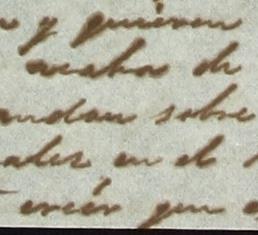 y quieren
acaba de
andan sobre
ales, en el
creén que